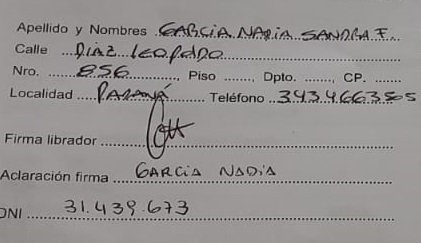 Apellido y Nombres GARCIA NADIA SANDRA F.
Calle DIAZ LEOPOLDO
Nro. 856, Piso ......., Dpto. ......., CP. .......
Localidad PARANÁ Teléfono 3434663505
Firma librador
Aclaración firma GARCIA NADIA
DNI 31.439.673